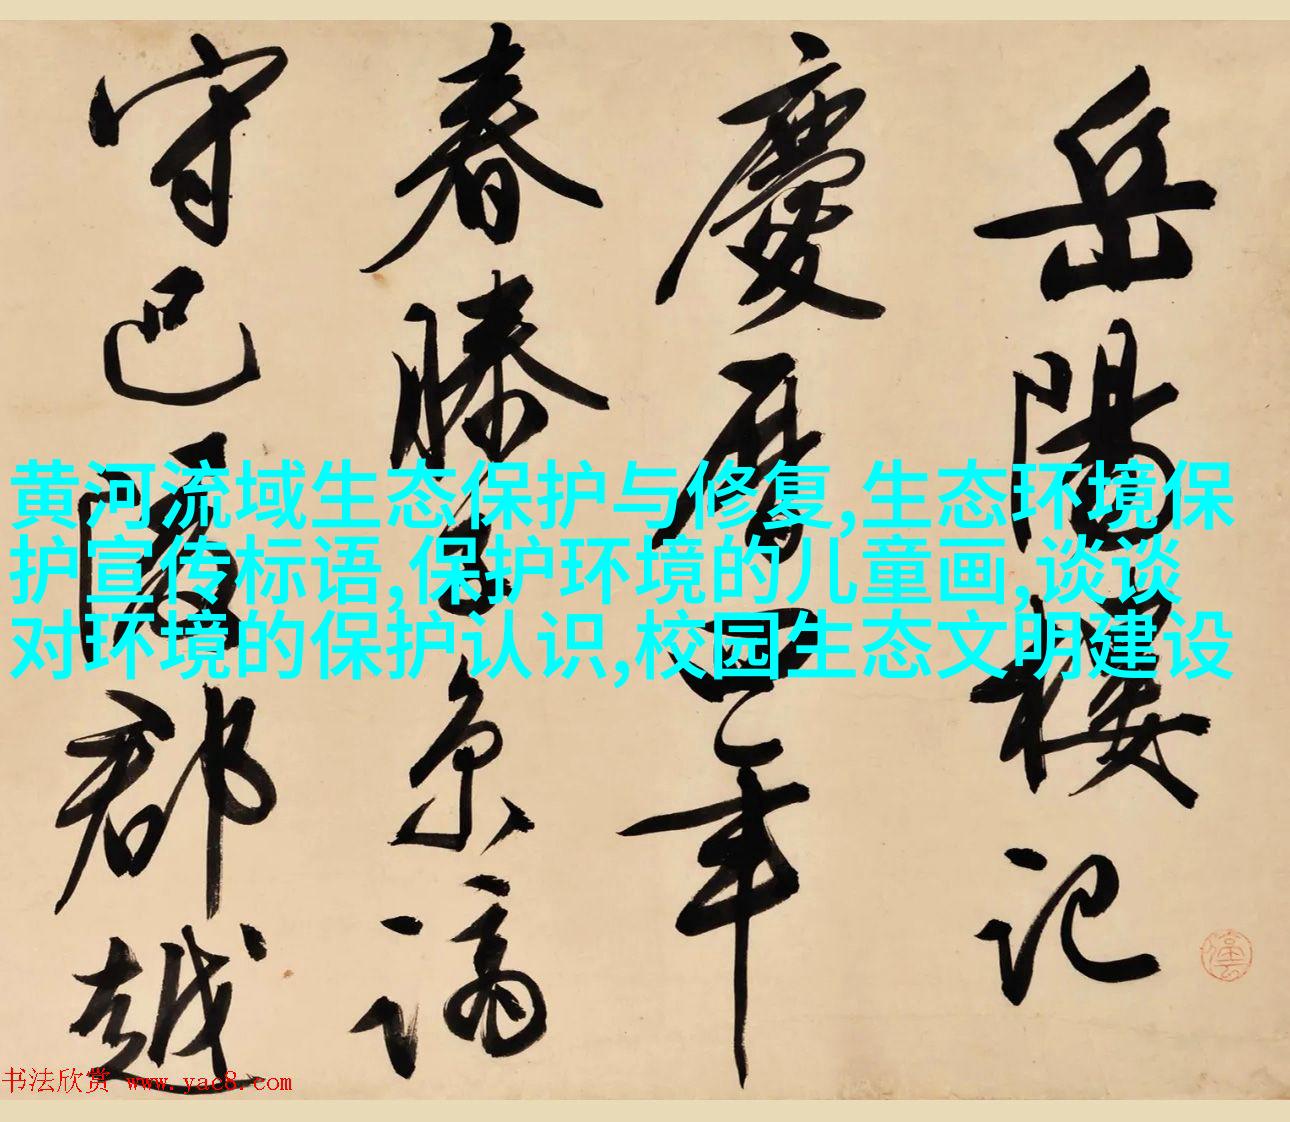 岳陽樓記
慶曆四年
春滕子京謫
守巴陵郡越
黄河流域生态保护与修复,生态环境保
护宣传标语,保护环境的儿童画,谈谈
对环境的保护认识,校园生态文明建设
书法欣赏 www.yac8.com